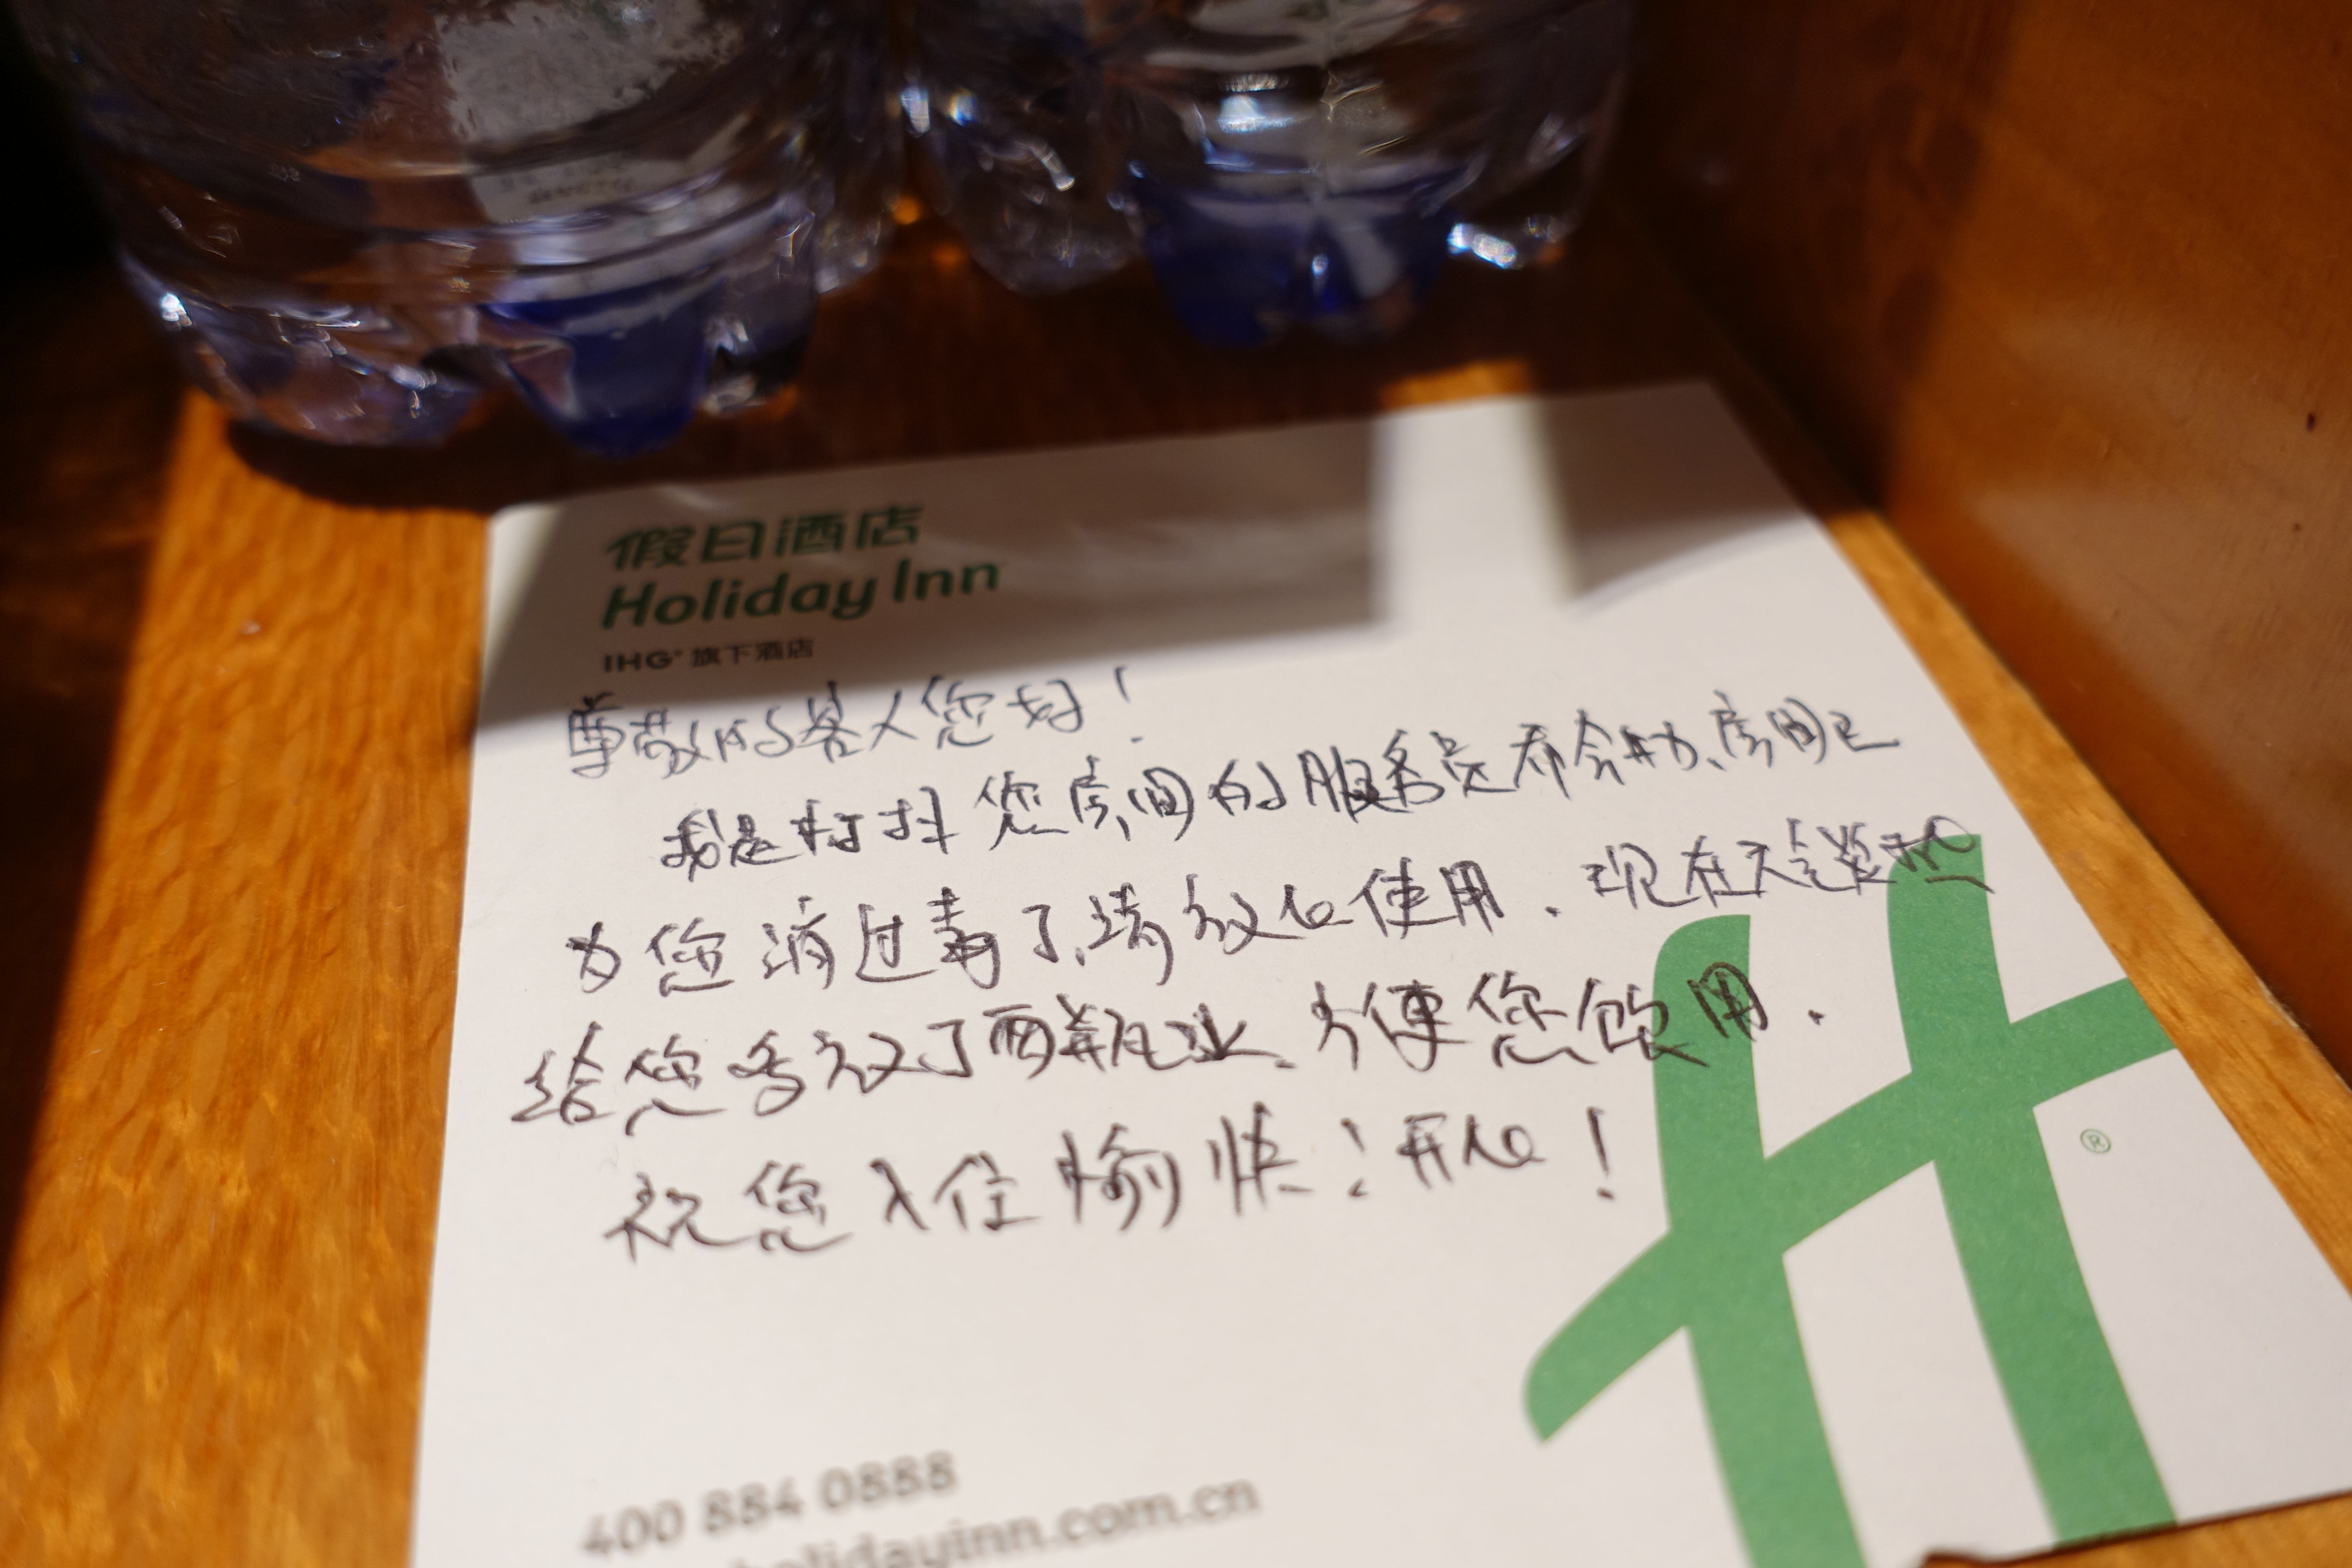 假日酒店
Holiday Inn
IHG® 旗下酒店
尊敬的客人您好！
我是打扫您房间的服务员 房间已
为您消过毒了,请放心使用. 现在天气炎热
给您多放了两瓶水、方便您饮用.
祝您入住愉快！开心！
®
400 884 0888
holidayinn.com.cn